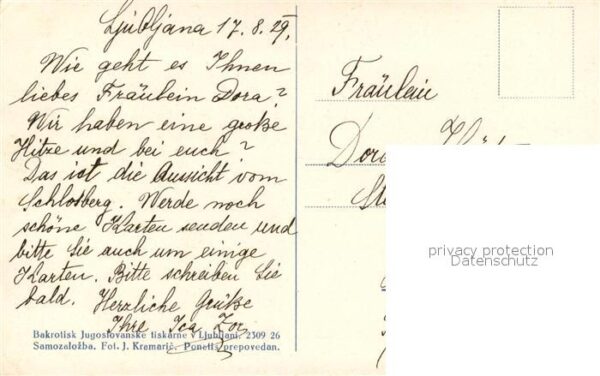 Ljubljana 17.8.29.
Wie geht es Ihnen
liebes Fräulein Dora?
Wir haben eine große
Hitze und bei euch?
Das ist die Aussicht vom
Schloßberg. Werde noch
schöne Karten senden und
bitte Sie auch um einige
Karten. Bitte schreiben Sie
bald. Herzliche Grüße
Ihre Ica
Bakrotisk Jugoslovanske tiskarne v Ljubljani. 2309 26
Samozaložba. Fot. J. Kramarič. Ponatis prepovedan.
Fräulein
privacy protection
Datenschutz